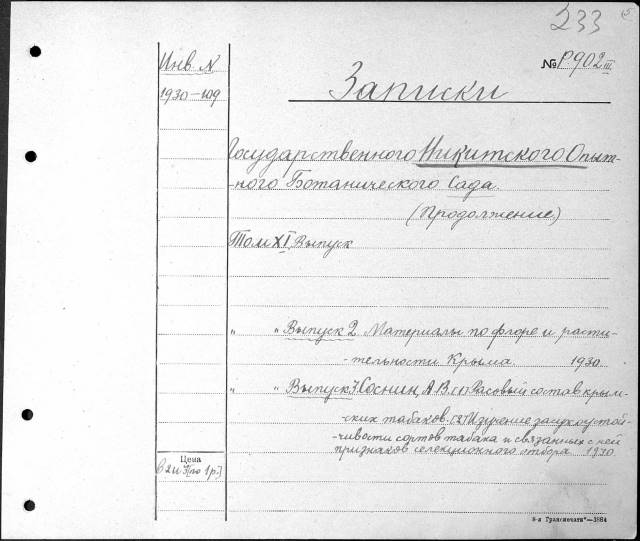 233
5
Инв. N
№ Р 902 III
1930—109
Записки
Государственного Никитского Опыт-
-ного Ботанического Сада.
(Продолжение)
Том XI, Выпуск
„ „ Выпуск 2. Материалы по флоре и расти-
-тельности Крыма. 1930.
„ „ Выпуск 3. Соснин, А. В. (1) Расовый состав крым-
-ских табаков. (2) Изучение засухоустой-
-чивости сортов табака и связанных с ней
признаков селекционного отбора. 1930.
Цена
в 2 и 3 [по 1 р.]
5-я Транспечати"—3884